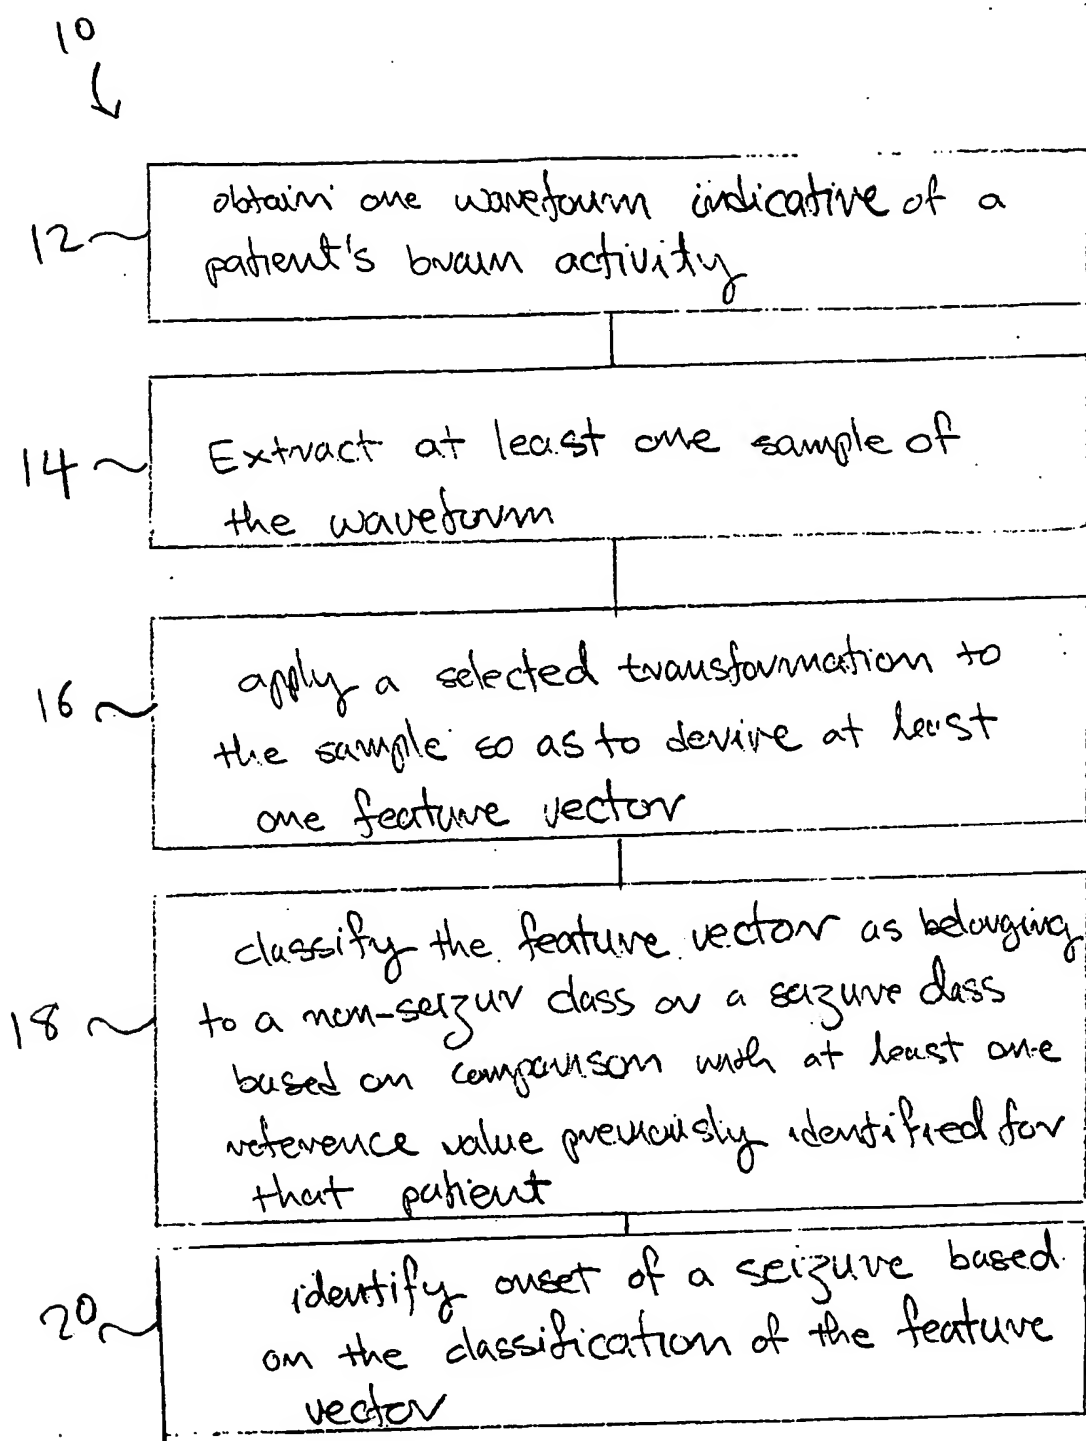 10
12
obtain one waveform indicative of a
patient's brain activity
14
Extract at least one sample of
the waveform
16
apply a selected transformation to
the sample so as to derive at least
one feature vector
classify the feature vector as belonging
18
to a non-seizur class or a seizure class
based on comparison with at least one
reference value previously identified for
that patient
20
identify onset of a seizure based
on the classification of the feature
vector